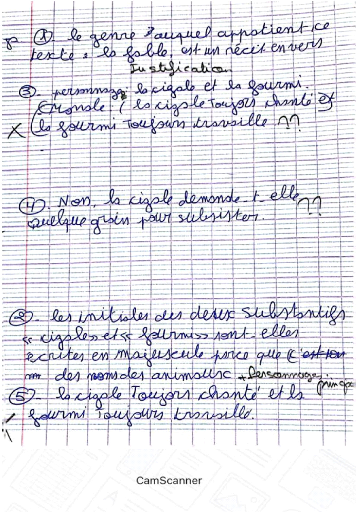 ① le genre auquel appatient ce
texte : la fable, est un récit en vers
Justification
③. personnage : la cigale et la fourmi.
(la cigale Toujors chanté et
X (la fourmi Toujours travaille ??
④. Non, la cigale demande-t-elle
quelque grain pour subsister. ??
②. les initiales des deux substantifs
« cigale » et « fourmi » sont-elles
écrites en majuscule parce que c'est un
des noms des animaux + Personnage princip
⑤. La cigale Toujors chanté et la
fourmi Toujours travaille.
CamScanner